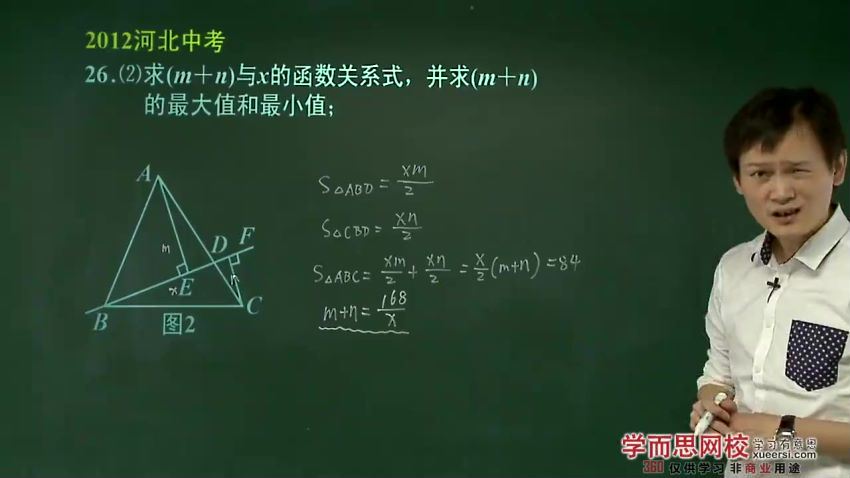 2012河北中考
26.⑵求(m+n)与x的函数关系式，并求(m+n)
的最大值和最小值；
A
m
D
F
E
x
n
B
C
图2
S△ABD = xm/2
S△CBD = xn/2
S△ABC = xm/2 + xn/2 = x/2 (m+n) = 84
m+n = 168/x
学而思网校 学习有意思
xueersi.com
360 仅供学习 非商业用途